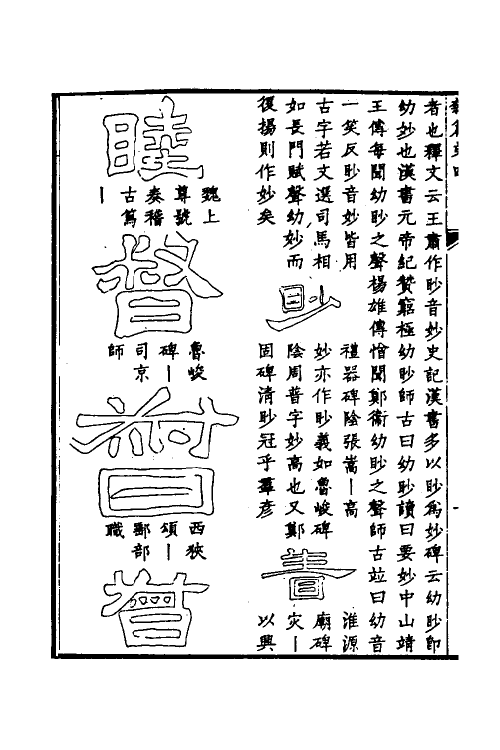 者也釋文云王肅作眇音妙史記漢書多以眇為妙碑云幼眇即
幼妙也漢書元帝紀贊窮極幼眇師古曰幼眇讀曰要妙中山靖
王傳每聞幼眇之聲楊雄傳憎聞鄭衞幼眇之聲師古竝曰幼音
一笑反眇音妙皆用
古字若文選司馬相
如長門賦聲幼妙而
後揚則作妙矣
眇
禮器碑陰張嵩丨高
妙亦作眇義如魯峻碑
陰周普字妙高也又鄭
固碑清眇冠乎羣彦
眚
淮源
廟碑
灾丨
以興
睦
魏上
尊號
奏稽
古篤
丨
督
魯峻
碑丨
司京
師
督
西狹
頌丨
鄐部
職
瞢